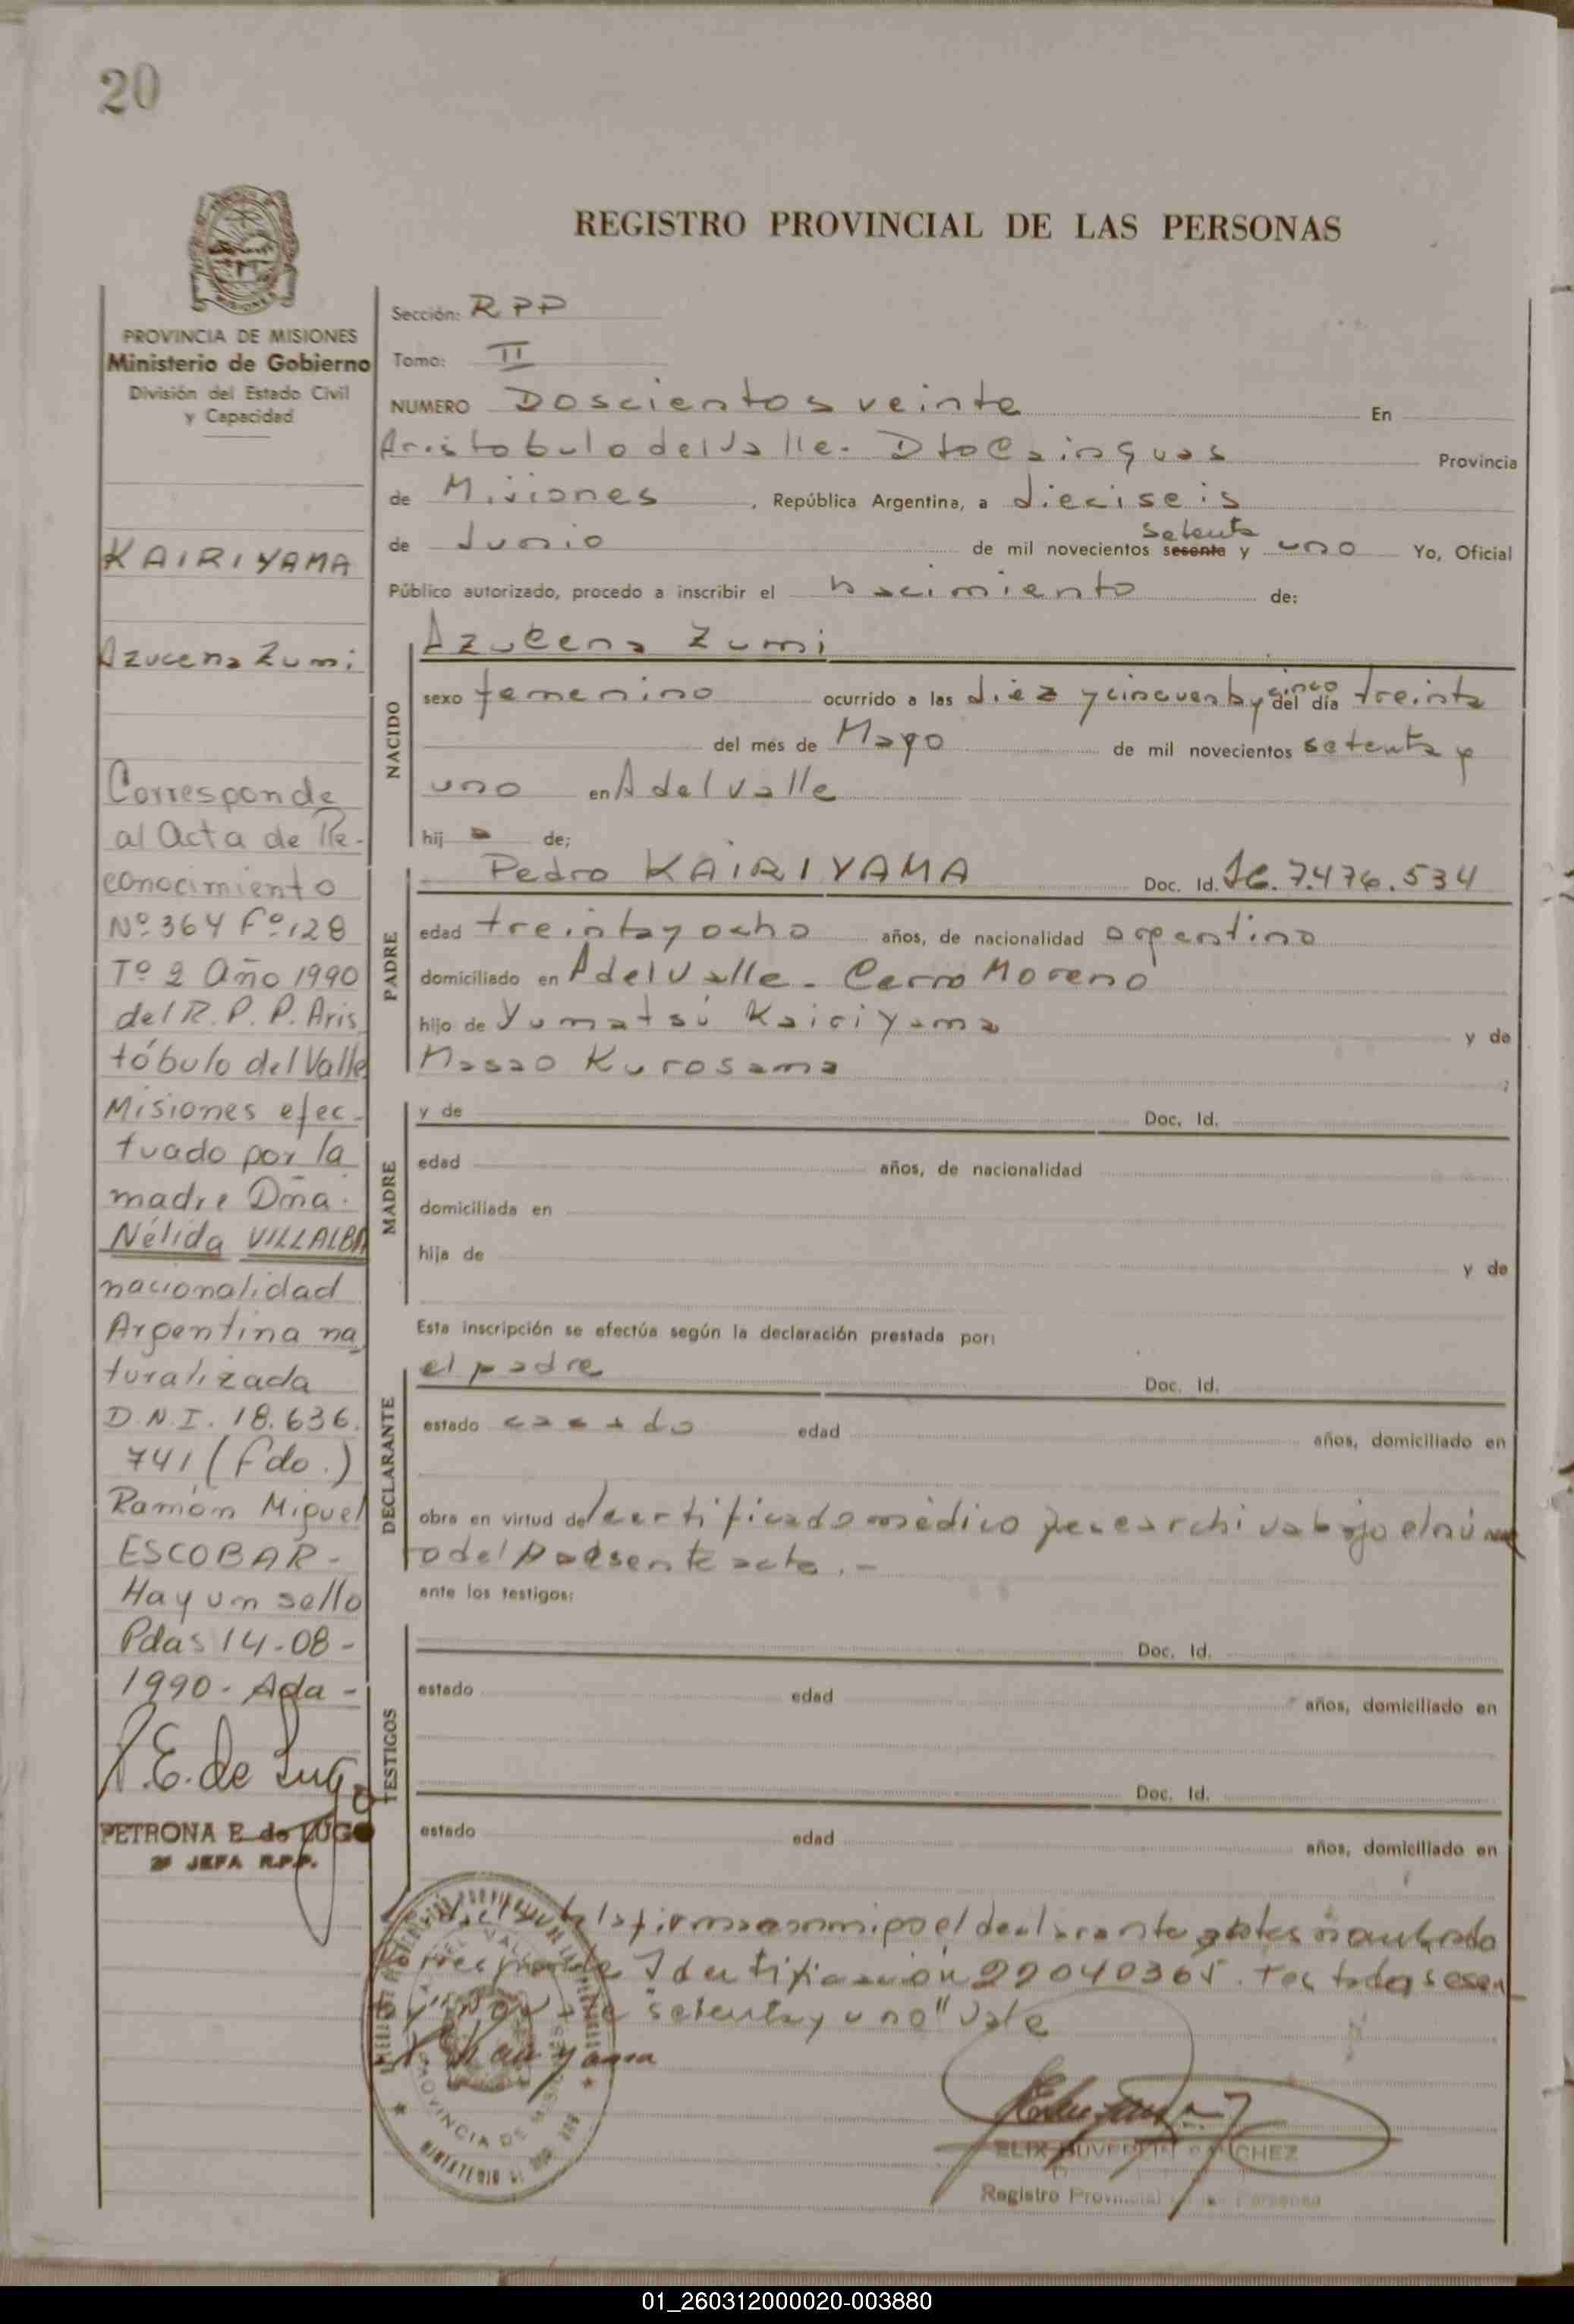 20
REGISTRO PROVINCIAL DE LAS PERSONAS
PROVINCIA DE MISIONES
Ministerio de Gobierno
División del Estado Civil
y Capacidad
KAIRIYAMA
Azucena Zumi
Corresponde
al Acta de Re-
conocimiento
Nº 364 Fº 128
Tº 2 Año 1990
del R.P.P. Aris
tóbulo del Valle
Misiones efec-
tuado por la
madre Dña.
Nélida VILLALBA
nacionalidad
Argentina na
turalizada
D.N.I. 18.636.
741 (Fdo.)
Ramón Miguel
ESCOBAR-
Hay un sello
Pdas 14-08-
1990- Ada-
P.E. de Lugo
PETRONA E. de LUGO
2ª JEFA R.P.P.
Sección: RPP
Tomo: II
NUMERO Doscientos veinte En
Aristobulo del Valle. Dto Cainguas Provincia
de Misiones, República Argentina, a dieciseis
setenta
de Junio de mil novecientos sesenta y uno Yo, Oficial
Público autorizado, procedo a inscribir el nacimiento de:
NACIDO
Azucena Zumi
cinco
sexo femenino ocurrido a las diez y cincuenta y del día treinta
del mes de Mayo de mil novecientos setenta y
uno en A del Valle
hij a de;
PADRE
Pedro KAIRIYAMA Doc. Id. 7.476.534
edad treinta y ocho años, de nacionalidad argentino
domiciliado en A del Valle - Cerro Moreno
hijo de Yumatsú Kairiyama y de
Masao Kurosama
MADRE
y de Doc. Id.
edad años, de nacionalidad
domiciliada en
hija de y de
Esta inscripción se efectúa según la declaración prestada por:
DECLARANTE
el padre Doc. Id.
estado casado edad años, domiciliado en
obra en virtud del certificado médico que se archiva bajo el núme
ro del presente acta.-
ante los testigos:
TESTIGOS
Doc. Id.
estado edad años, domiciliado en
Doc. Id.
estado edad años, domiciliado en
la firma conmigo el declarante antes nombrado
Identificación 22040365. Testado sesen
"setenta y uno" Vale
SANCHEZ
Registro Provincial
PROVINCIA DE MISIONES
MINISTERIO
01_260312000020-003880